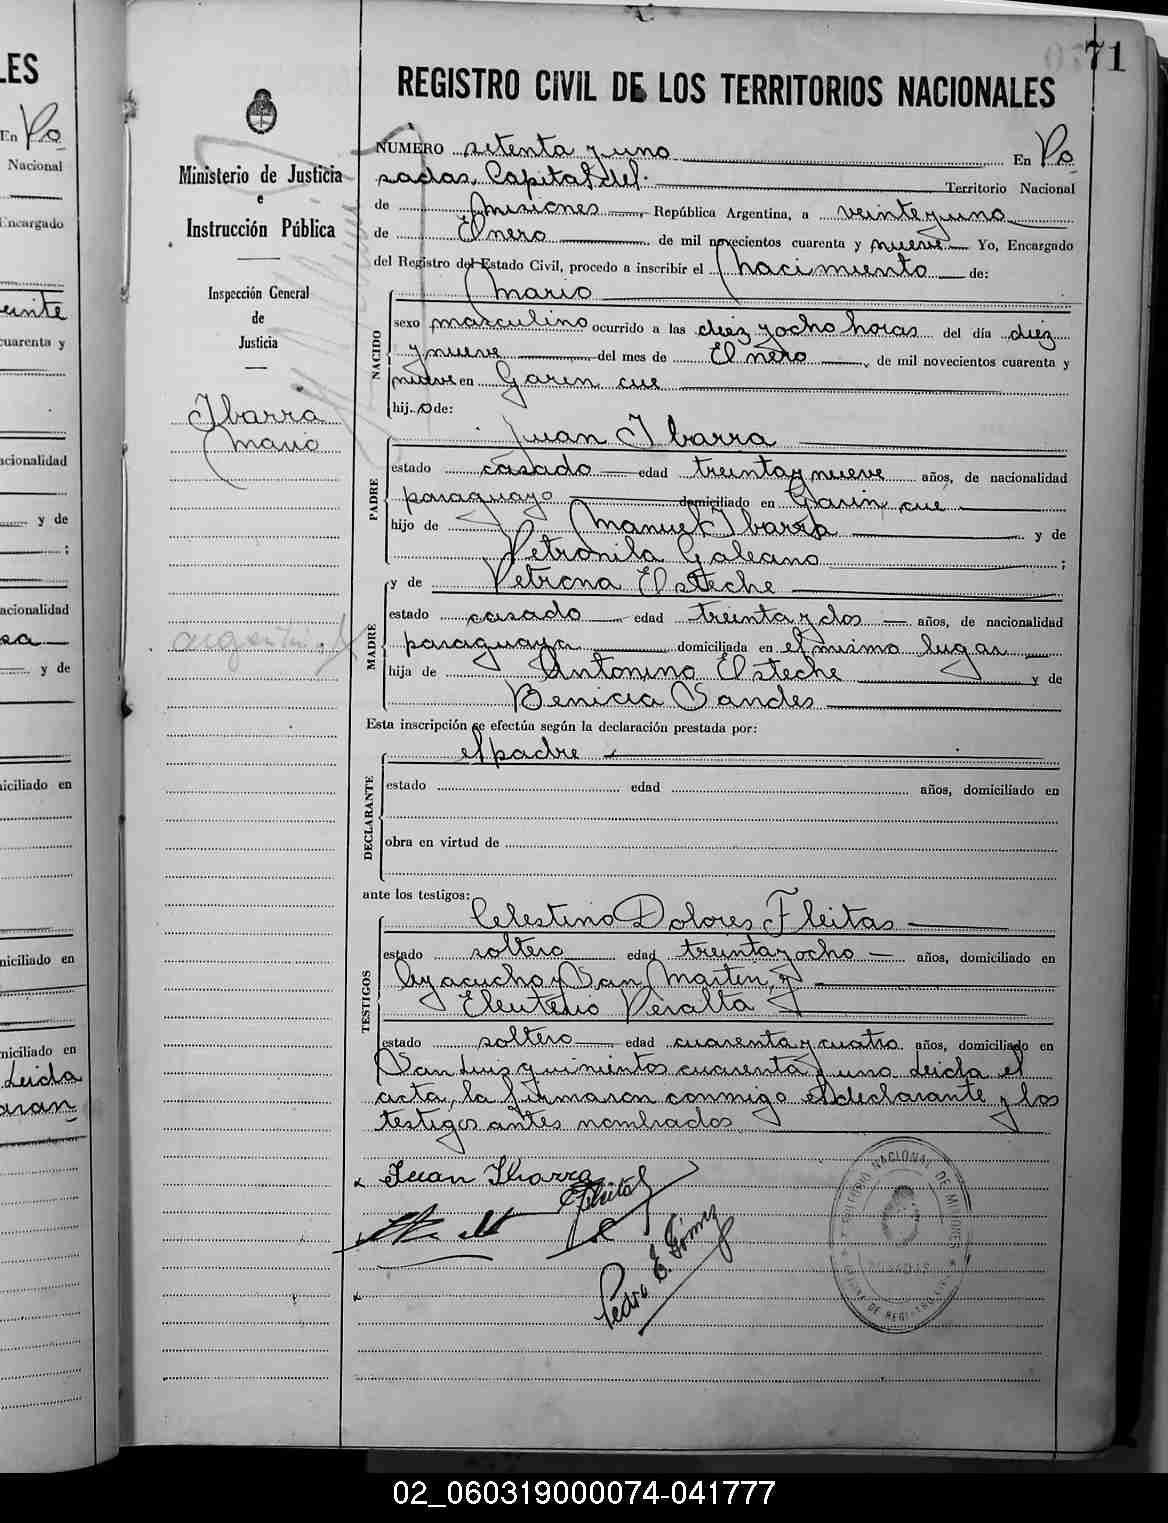 71
REGISTRO CIVIL DE LOS TERRITORIOS NACIONALES
Ministerio de Justicia
e
Instrucción Pública
Inspección General
de
Justicia
Ibarra
Mario
argentin
NUMERO setenta y uno En Po
sadas, Capital del Territorio Nacional
de Misiones, República Argentina, a veinte y uno
de Enero de mil novecientos cuarenta y nueve Yo, Encargado
del Registro del Estado Civil, procedo a inscribir el Nacimiento de:
Mario
NACIDO
sexo masculino ocurrido a las diez y ocho horas del día diez
y nueve del mes de Enero de mil novecientos cuarenta y
nueve en Garin cue
hij o de:
Juan Ibarra
PADRE
estado casado edad treinta y nueve años, de nacionalidad
paraguayo domiciliado en Garin cue
hijo de Manuel Ibarra y de
Petronila Galeano ;
y de Petrona Esteche
MADRE
estado casado edad treinta y dos años, de nacionalidad
paraguaya domiciliada en el mismo lugar
hija de Antonino Esteche y de
Benicia Sandes
Esta inscripción se efectúa según la declaración prestada por:
el padre
DECLARANTE
estado edad años, domiciliado en
obra en virtud de
ante los testigos:
Celestino Dolores Fleitas
TESTIGOS
estado soltero edad treinta y ocho años, domiciliado en
Ayacucho y San Martin, y
Eleuterio Peralta
estado soltero edad cuarenta y cuatro años, domiciliado en
San Luis quinientos cuarenta y uno Leida el
acta, la firmaron conmigo el declarante y los
testigos antes nombrados
Juan Ibarra
Fleitas
Pedro E. Gómez
TERRITORIO NACIONAL DE MISIONES
POSADAS
LES
En Po
Nacional
Encargado
cuarenta y
acionalidad
y de
;
acionalidad
y de
niciliado en
niciliado en
niciliado en
Leida
02_060319000074-041777